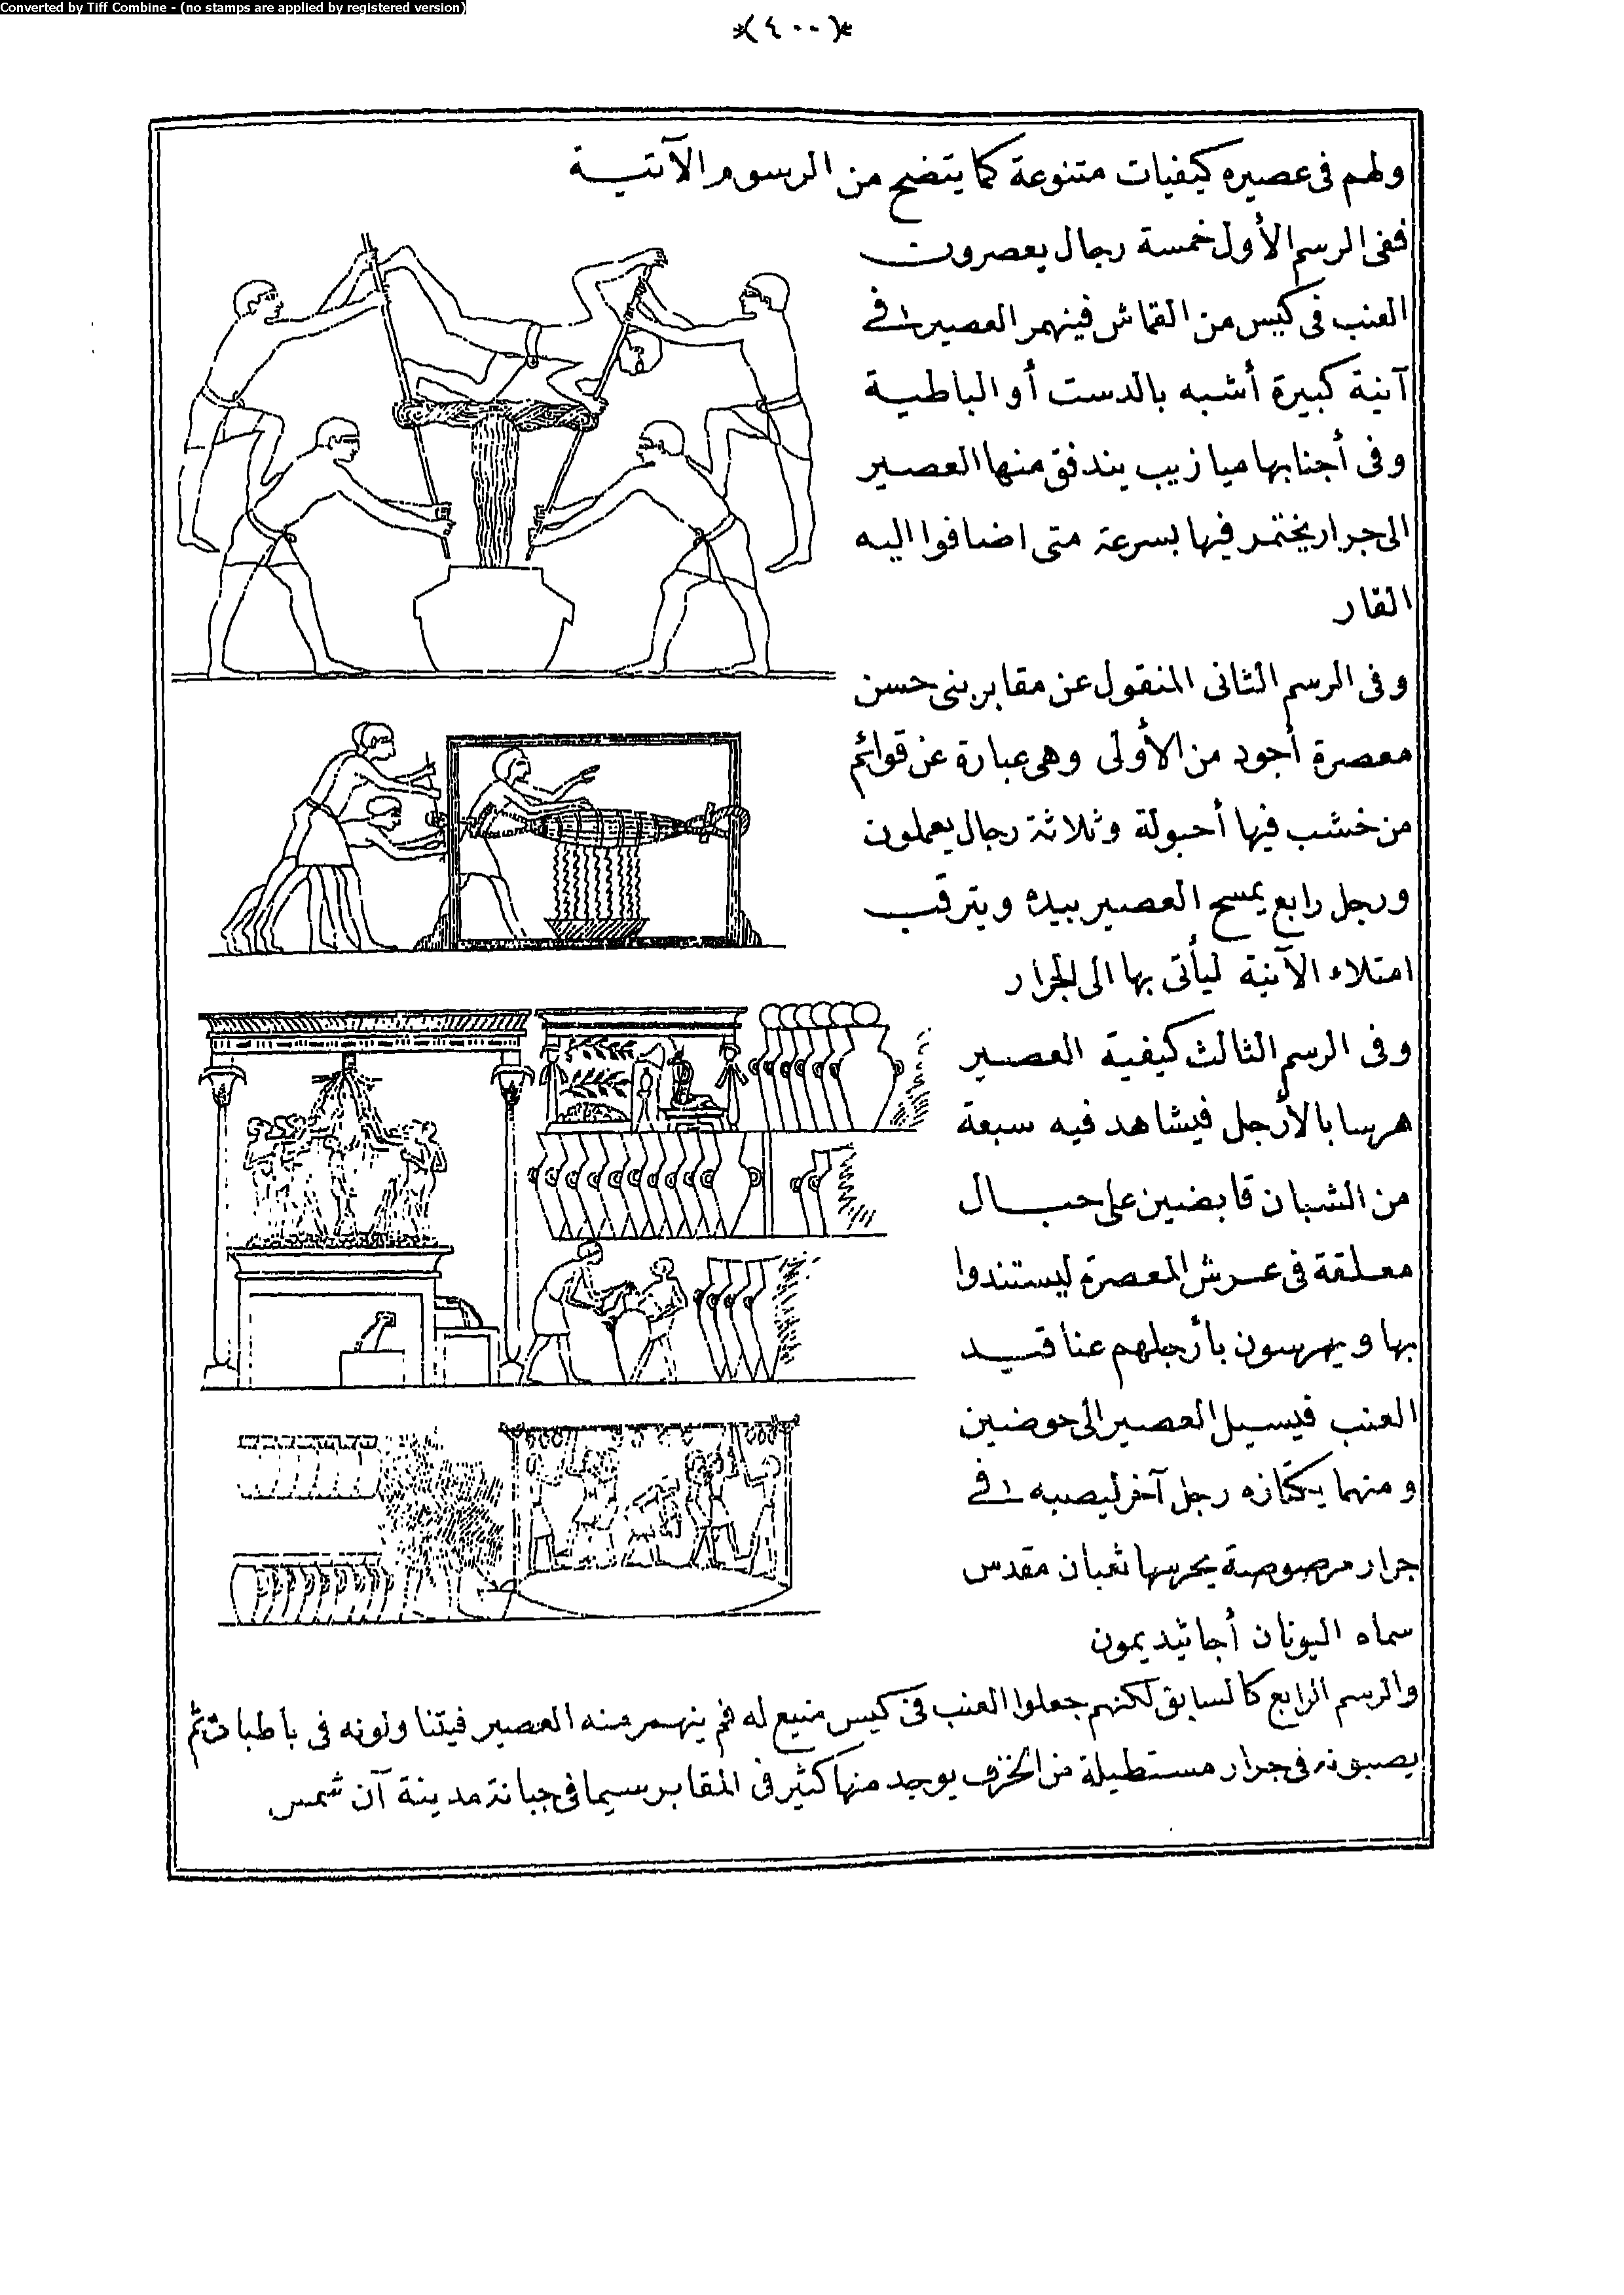 Converted by Tiff Combine - (no stamps are applied by registered version)
*(٤٠٠)*
ولهم فى عصيره كيفيات متنوعة كما يتضح من الرسوم الآتية
ففى الرسم الأول خمسة رجال يعصرون
العنب فى كيس من القماش فينهمر العصير فى
آنية كبيرة أشبه بالدست أو الباطية
وفى أجنابها ميازيب يندفق منها العصير
الى جرار يختمر فيها بسرعة متى اضافوا اليه
القار
وفى الرسم الثانى المنقول عن مقابر بنى حسن
معصرة أجود من الأولى وهى عبارة عن قوائم
من خشب فيها أحبولة وثلاثة رجال يعملون
ورجل رابع يمسح العصير بيده ويترقب
امتلاء الآنية ليأتى بها الى الجرار
وفى الرسم الثالث كيفية العصير
هرسا بالأرجل فيشاهد فيه سبعة
من الشبان قابضين على حبال
معلقة فى عرش المعصرة ليستندوا
بها ويهرسون بأرجلهم عناقيد
العنب فيسيل العصير الى حوضين
ومنهما رجل آخر ليصبه فى
جرار مرصوصة يحرسها ثعبان مقدس
سماه اليونان أجاثيديمون
والرسم الرابع كالسابق لكنهم جعلوا العنب فى كيس منيع له فم ينهمر منه العصير فيتناولونه فى باطيات ثم
يصبونه فى جرار مستطيلة من الخزف يوجد منها كثير فى المقابر سيما فى جبانة مدينة آن شمس